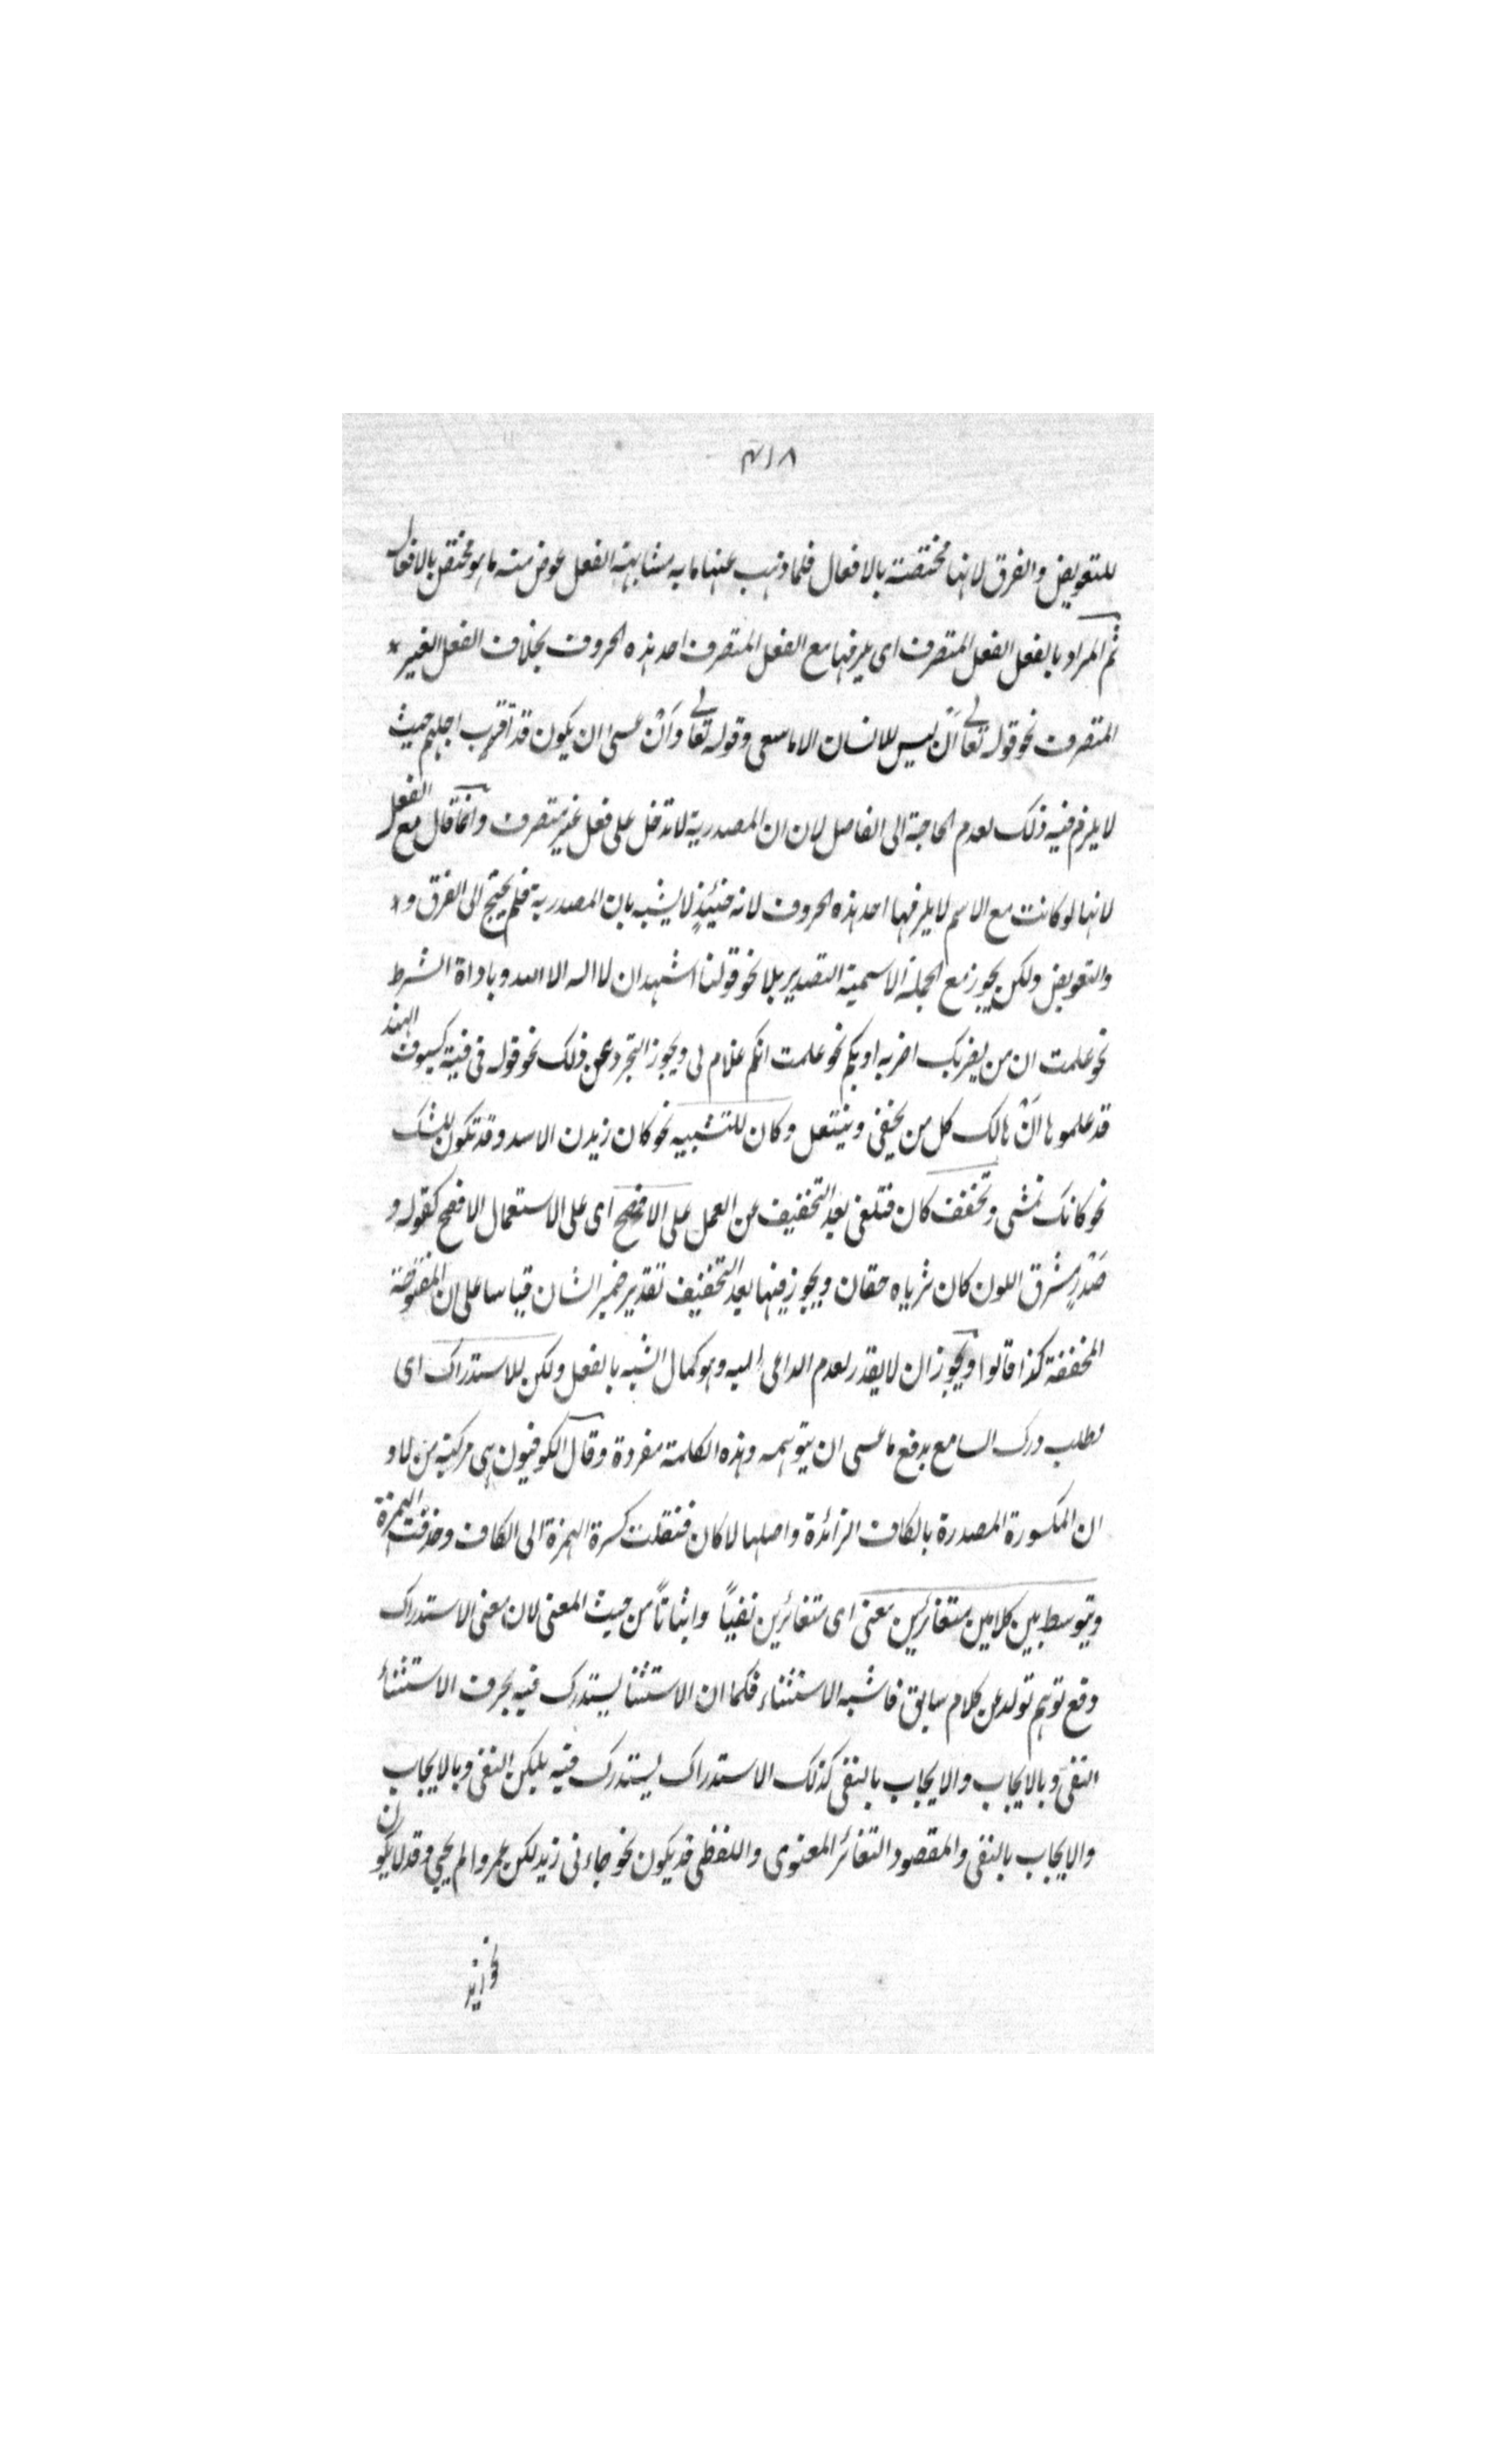 ٣١٨
للتعويض والفرق لانها مختصة بالافعال فلما ذهب عنها ما به مشابهة الفعل عوض منه ما هو مختص بالافعال
ثم المراد بالفعل الفعل المتصرف اى يلزمها مع الفعل المتصرف احد هذه الحروف بخلاف الفعل الغير
المتصرف نحو قوله تعالى اَنْ ليس للانسان الا ما سعى وقوله تعالى واَنْ عسى ان يكون قد اقترب اجلهم حيث
لا يلزم فيه ذلك لعدم الحاجة الى الفاصل لان ان المصدرية لا تدخل على فعل غير متصرف وانما قال مع الفعل
لانها لو كانت مع الاسم لا يلزمها احد هذه الحروف لانه حينئذٍ لا يشبه بان المصدرية فلم يحتج الى الفرق و
والتعويض ولكن يجوز مع الجملة الاسمية التصدير بلا نحو قولنا اشهد ان لا اله الا الله وباداة الشرط
نحو علمت ان من يضربك اضربه او بكم نحو علمت انكم غلام لى ويجوز التجرد عن ذلك نحو قوله فى فتية كسيوف الهند
قد علموها اَنْ هالك كل من يحفى وينتعل وكان للتشبيه نحو كان زيدن الاسد وقد تكون للشك
نحو كانك تمشى وتخفف كان فتلغى بعد التخفيف عن العمل على الافصح اى على الاستعمال الافصح كقوله و
صَدْرٍ مشرق اللون كان ثرياه حقان ويجوز فيها بعد التخفيف تقدير ضمير الشان قياسا على ان المفتوحة
المخففة كذا قالوا ويجوز ان لا يقدر لعدم الداعى اليه وهو كمال الشبه بالفعل ولكن للاستدراك اى
لطلب درك السامع بدفع ما عسى ان يتوهمه وهذه الكلمة مفردة وقال الكوفيون هى مركبة من لا و
ان المكسورة المصدرة بالكاف الزائدة واصلها لا كان فنقلت كسرة الهمزة الى الكاف وحذفت الهمزة
ويتوسط بين كلامين متغائرين معنى اى متغائرين نفياً واثباتاً من حيث المعنى لان معنى الاستدراك
دفع توهم تولد عن كلام سابق فاشبه الاستثناء فكما ان الاستثنا يستدرك فيه بحرف الاستثناء
النفى وبالايجاب والايجاب بالنفى كذلك الاستدراك يستدرك فيه بلكن النفى وبالايجاب
والايجاب بالنفى والمقصود التغائر المعنوى واللفظى قد يكون نحو جاءنى زيد لكن عمروا لم يجى وقد لا يكون
نحو زيد